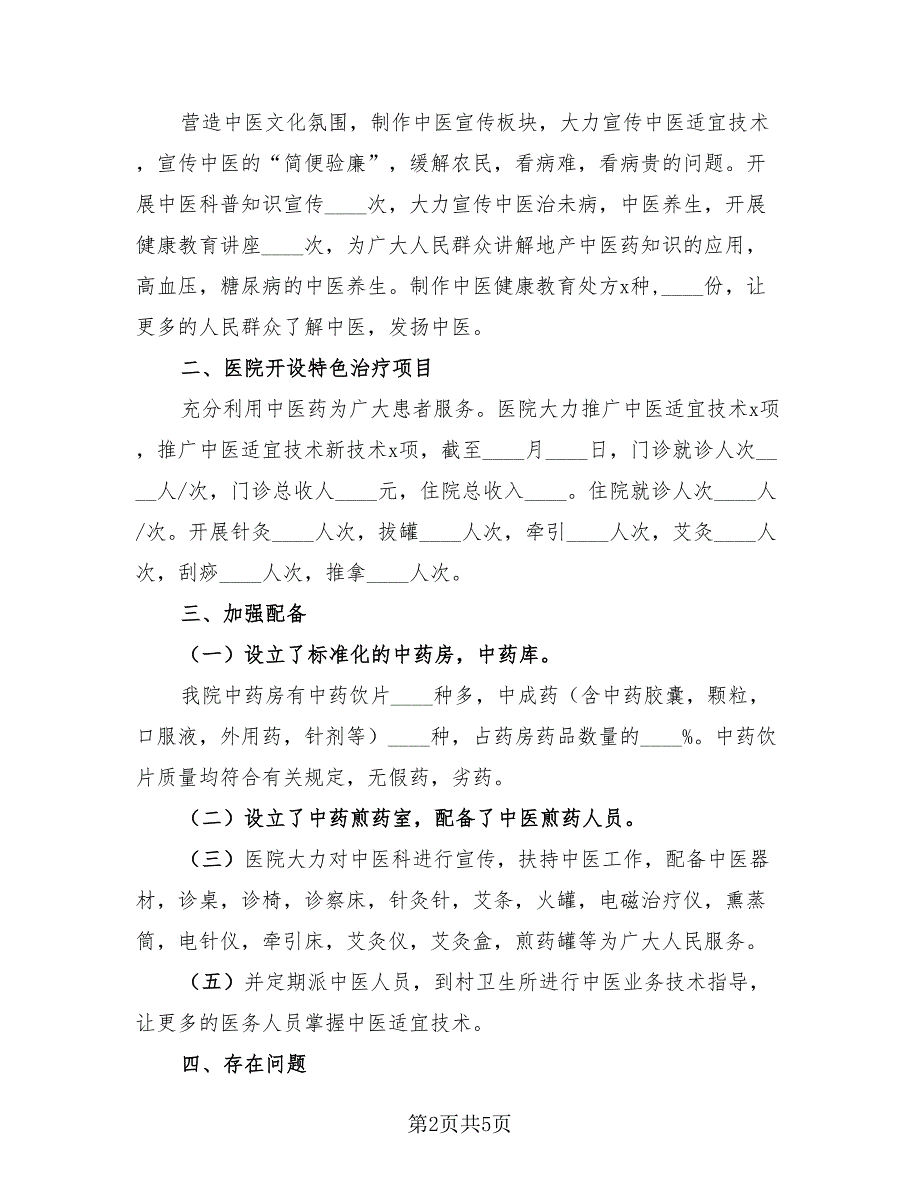 营造中医文化氛围，制作中医宣传板块，大力宣传中医适宜技术
，宣传中医的“简便验廉”，缓解农民，看病难，看病贵的问题。开
展中医科普知识宣传____次，大力宣传中医治未病，中医养生，开展
健康教育讲座____次，为广大人民群众讲解地产中医药知识的应用，
高血压，糖尿病的中医养生。制作中医健康教育处方x种,____份，让
更多的人民群众了解中医，发扬中医。
二、医院开设特色治疗项目
充分利用中医药为广大患者服务。医院大力推广中医适宜技术x项
，推广中医适宜技术新技术x项，截至____月____日，门诊就诊人次__
__人/次，门诊总收人____元，住院总收入____。住院就诊人次____人
/次。开展针灸____人次，拔罐____人次，牵引____人次，艾灸____人
次，刮痧____人次，推拿____人次。
三、加强配备
（一）设立了标准化的中药房，中药库。
我院中药房有中药饮片____种多，中成药（含中药胶囊，颗粒，
口服液，外用药，针剂等）____种，占药房药品数量的____%。中药饮
片质量均符合有关规定，无假药，劣药。
（二）设立了中药煎药室，配备了中医煎药人员。
（三）医院大力对中医科进行宣传，扶持中医工作，配备中医器
材，诊桌，诊椅，诊察床，针灸针，艾条，火罐，电磁治疗仪，熏蒸
筒，电针仪，牵引床，艾灸仪，艾灸盒，煎药罐等为广大人民服务。
（五）并定期派中医人员，到村卫生所进行中医业务技术指导，
让更多的医务人员掌握中医适宜技术。
四、存在问题
第2页共5页